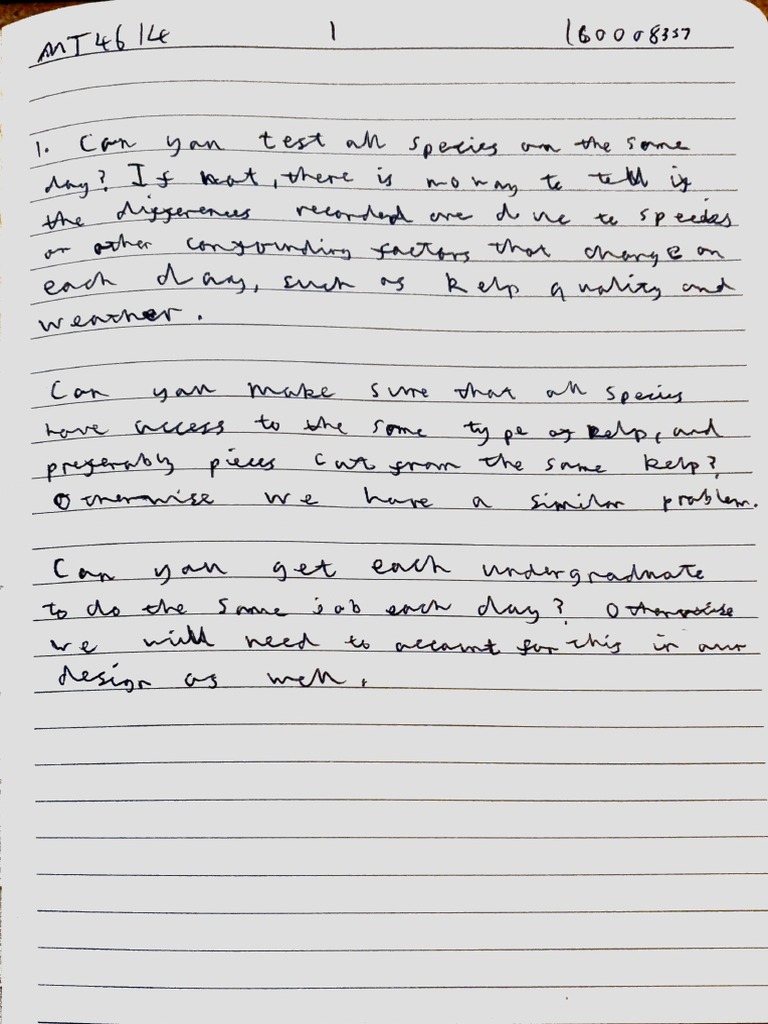 MT4614 1 160008357
1. Can you test all species on the same
day? If not, there is no way to tell if
the differences recorded are due to species
or other confounding factors that change on
each day, such as kelp quality and
weather.
Can you make sure that all species
have access to the same type of kelp, and
preferably pieces cut from the same kelp?
Otherwise we have a similar problem.
Can you get each undergraduate
to do the same job each day? Otherwise
we will need to account for this in our
design as well.